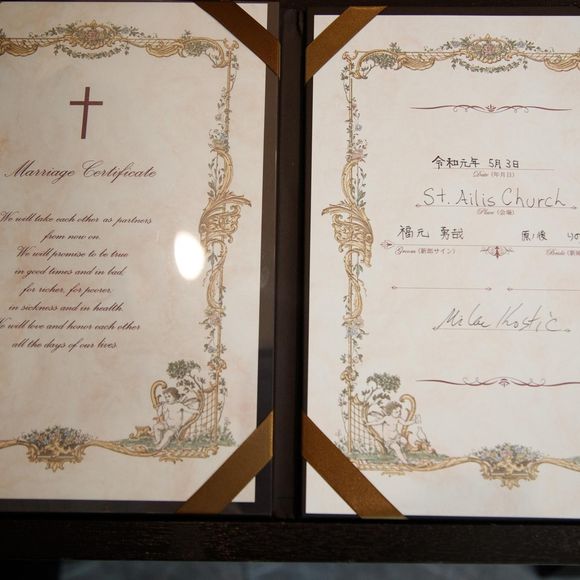 Marriage Certificate
We will take each other as partners
from now on.
We will promise to be true
in good times and in bad,
for richer, for poorer,
in sickness and in health.
We will love and honor each other
all the days of our lives.
令和元年 5月3日
Date (年月日)
St. Ailis Church
Place (会場)
福元 勇哉
Groom (新郎サイン)
Bride (新婦